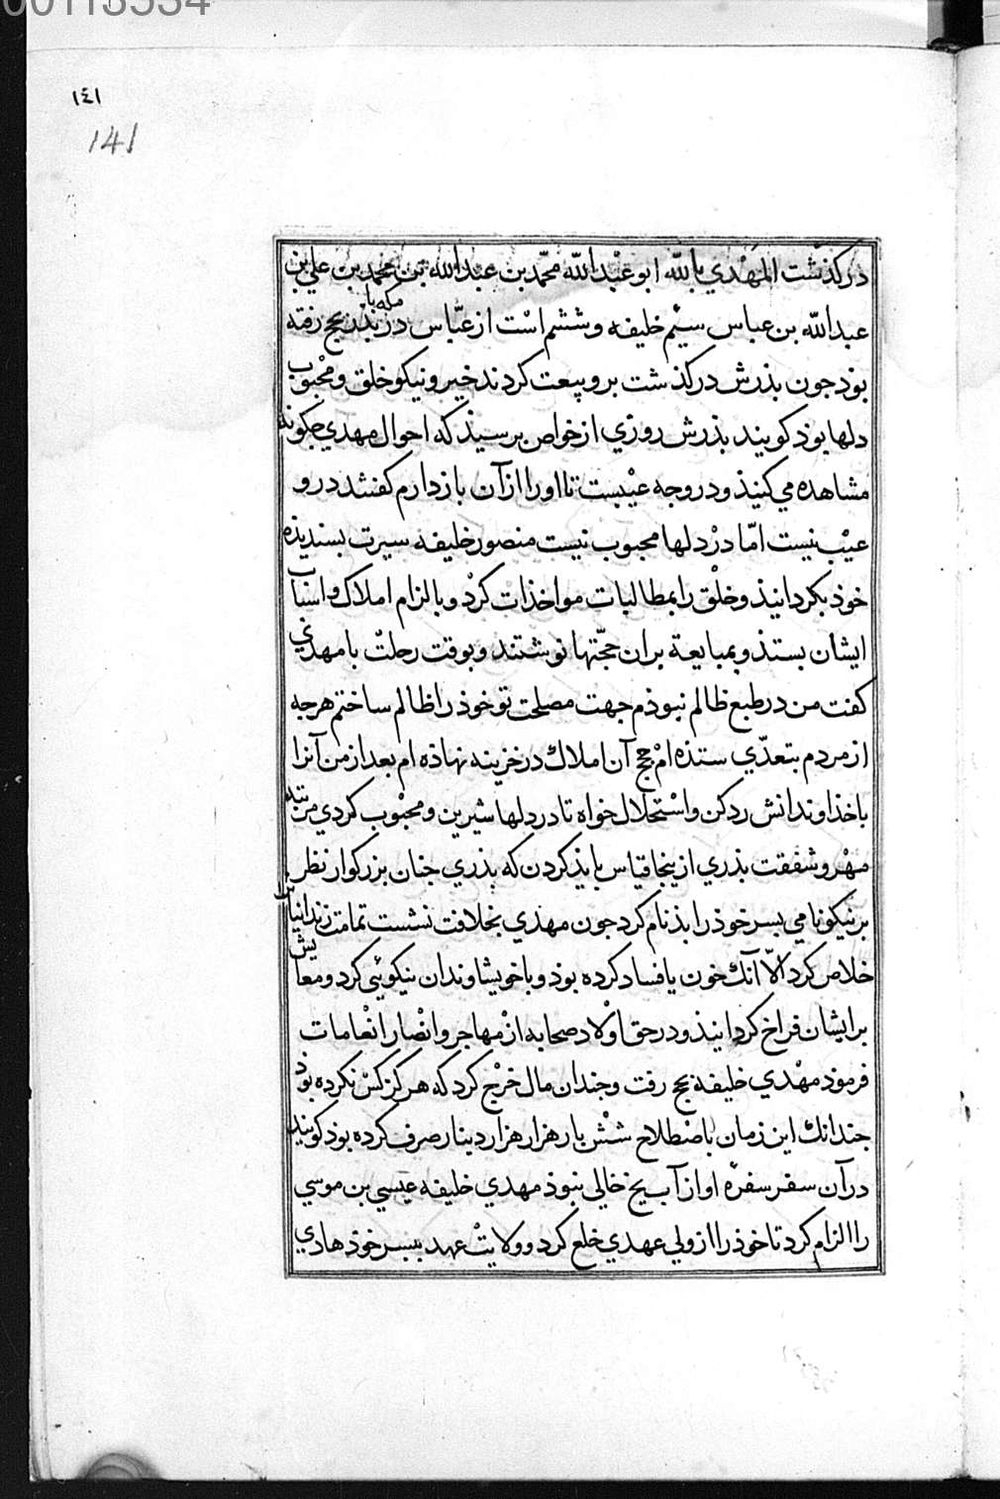 00113534
١٤١
141
درکذشت المهْدي بالله ابو عبْدالله محمّد بن عبدالله بن محمد بن علي بن
عبدالله بن عباس سیٔم خلیفه وششم اسْت از عبّاس در بدر بحج رفته
مکه با
بوذ جون بذرش درکذشت برو بیعت کردند خیر و نیکو خلق و محبْوب
دلها بوذ کویند بذرش روزي از خواص برسیذ که احوال مهدي جکونه
مشاهده می کنیذ و در وجه عیْبست تا اورا ازآن بازدارم کفتند درو
عیْب نیست امّا درْدلها محبوب نیست منصور خلیفه سیرت بسندیذه
خوذ بکردانیذ وخلْق را بمطالبات مواخذات کرْد وبالزام املاک و اسباب
ایشان بستذ و بمبایعة بران حجّتها نوشتند و بوقت رحلتْ با مهدي
کفت من در طبع ظالم نبوذم جهت مصلحت تو خوذ را ظالم ساختم هرجه
از مردم بتعدّي ستذه امْ حجج آن املاک در خزینه نهاذه ام بعد از من آنرا
با خذاوندانش رد کن واسْتحلال خواه تا در دلها شیرین و محبْوب کردي مرتبه
مهْر و شفقت بذري ازینجا قیاس بایذ کردن که بذري جنان بزرکوار نظر
بر نیکو نامي بسر خوذ را بذنام کرد جون مهذي بخلافت نشست تمامت زندانیانرا
خلاص کرد الّا آنک خون یا فساد کرده بوذ و با خویشاوندان نیکویٔي کرد و معاش
برایشان فراخ کردانیذ و در حق اوْلاد صحابه ازْ مهاجر وانْصار انْعامات
فرموذ مهْدي خلیفه بحج رفت وجندان مال خرْج کرد که هرکز کسْ نکرده بوذ
جندانک این زمان باصْطلاح ششْ بار هزار هزار دینار صرف کرده بوذ کویند
درآن سفر سفرهٔ او از آب یخ خالی نبوذ مهدي خلیفه عیْسي بن موسي
را الزام کرد تا خوذ را از ولی عهدي خلع کرد و ولایتْ عهد ببسر خوذ هادي